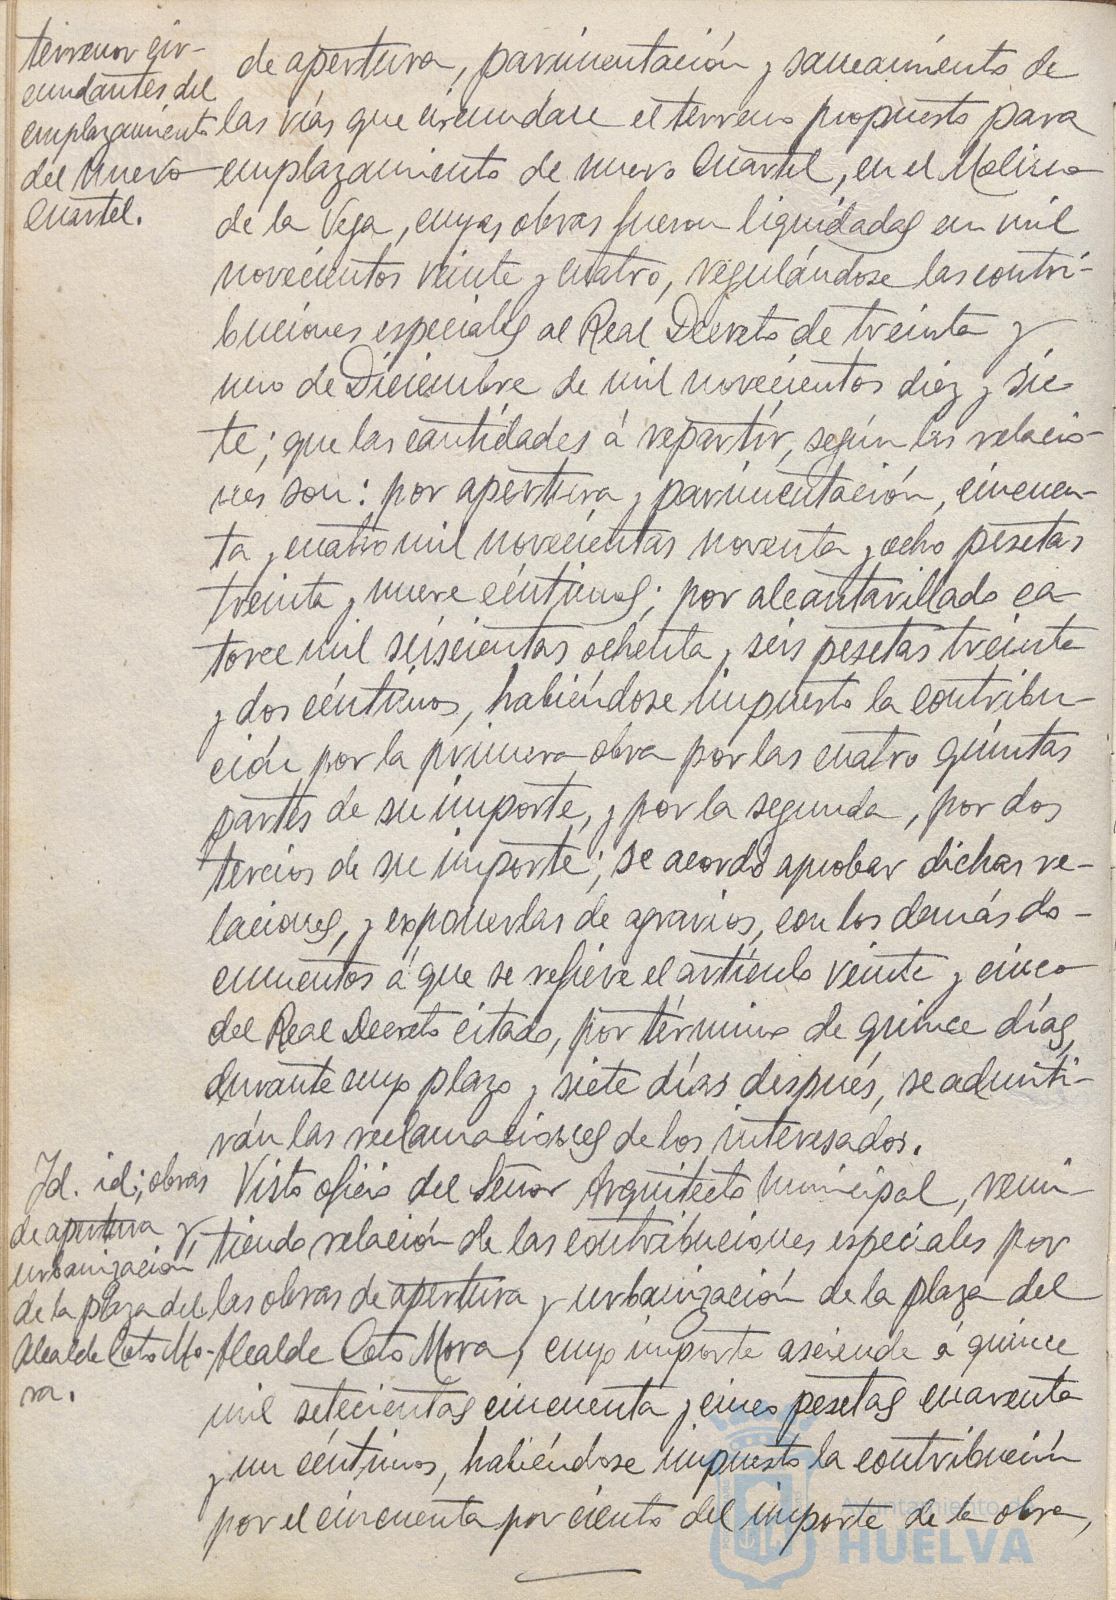 terrenos cir-
cundantes del
emplazamiento
del nuevo
Cuartel.
de apertura, pavimentación y saneamiento de
las vías que circundan el terreno propuesto para
emplazamiento de nuevo Cuartel, en el Molino
de la Vega, cuyas obras fueron liquidadas en mil
novecientos veinte y cuatro, regulándose las contri-
buciones especiales al Real Decreto de treinta y
uno de Diciembre de mil novecientos diez y sie
te; que las cantidades á repartir, según las relacio-
nes son: por apertura y pavimentación, cincuen-
ta y cuatro mil novecientas noventa y ocho pesetas
treinta y nueve céntimos; por alcantarillado ca
torce mil seiscientas ochenta y seis pesetas treinta
y dos céntimos, habiéndose impuesto la contribu-
ción por la primera obra por las cuatro quintas
partes de su importe, y por la segunda, por dos
tercios de su importe; se acordó aprobar dichas re-
laciones, y exponerlas de agravios, con los demás do-
cumentos á que se refiere el artículo veinte y cinco
del Real Decreto citado, por término de quince días,
durante cuyo plazo y siete días después, se admiti-
rán las reclamaciones de los interesados.
Id. id.; obras
de apertura y
urbanización
de la plaza del
Alcalde Coto Mo-
ra.
Visto oficio del Señor Arquitecto Municipal, remi-
tiendo relación de las contribuciones especiales por
las obras de apertura y urbanización de la plaza del
Alcalde Coto Mora, cuyo importe asciende á quince
mil setecientas cincuenta y cinco pesetas cuarenta
y un céntimos, habiéndose impuesto la contribución
por el cincuenta por ciento del importe de la obra,
Ayuntamiento de
HUELVA